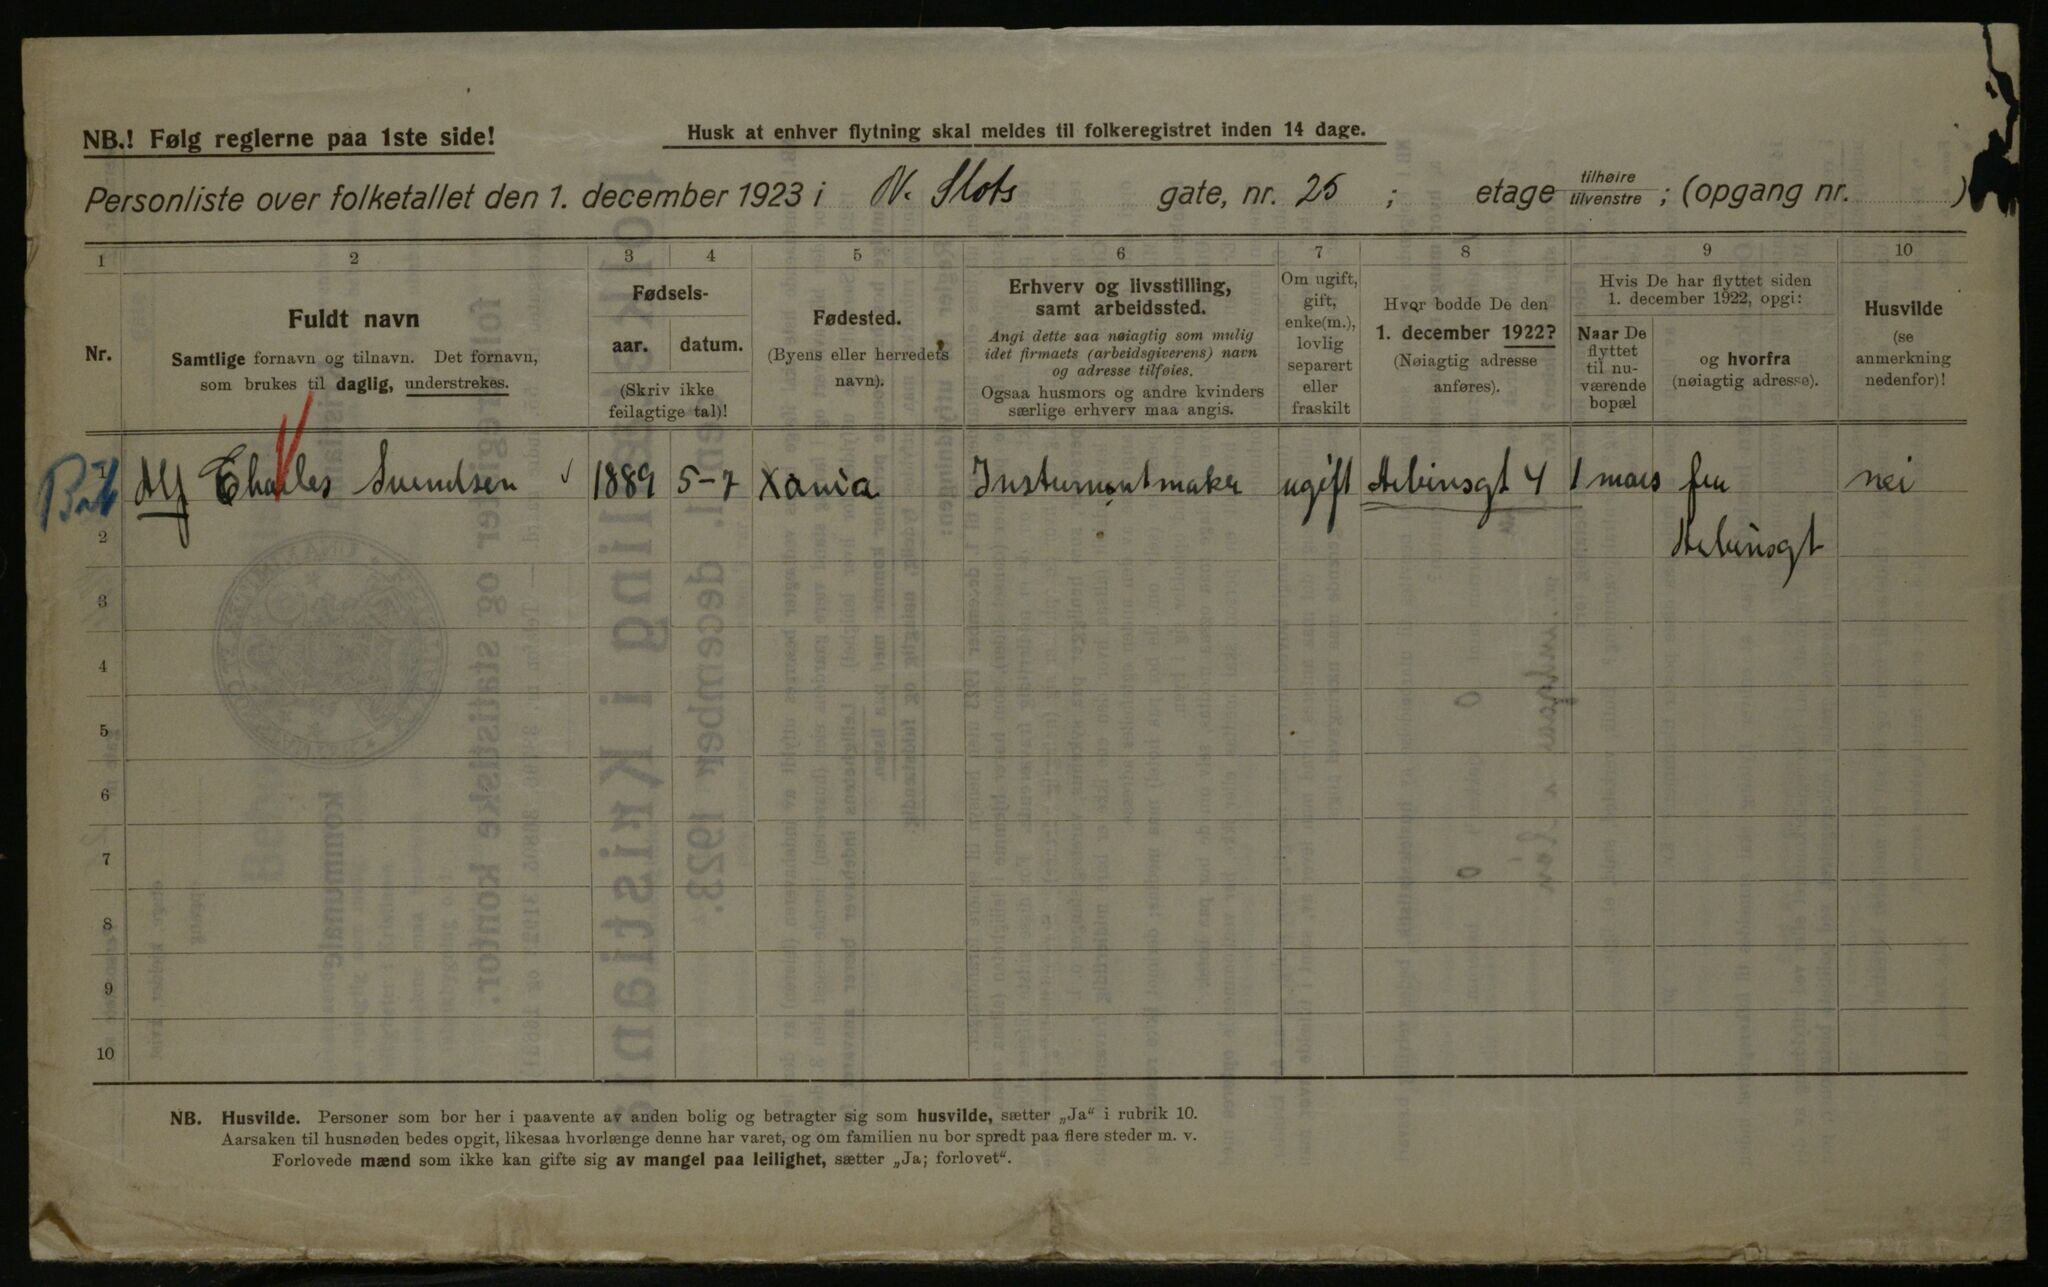 NB.! Følg reglerne paa 1ste side!
Husk at enhver flytning skal meldes til folkeregistret inden 14 dage.
Personliste over folketallet den 1. december 1923 i N. Slots gate, nr. 25 ; etage tilhøire tilvenstre ; (opgang nr. )
1 2 3 4 5 6 7 8 9 10
Nr.
Fuldt navn
Samtlige fornavn og tilnavn. Det fornavn,
som brukes til daglig, understrekes.
Fødsels-
aar. datum.
(Skriv ikke
feilagtige tal)!
Fødested.
(Byens eller herredets
navn).
Erhverv og livsstilling,
samt arbeidssted.
Angi dette saa nøiagtig som mulig
idet firmaets (arbeidsgiverens) navn
og adresse tilføies.
Ogsaa husmors og andre kvinders
særlige erhverv maa angis.
Om ugift,
gift,
enke(m.),
lovlig
separert
eller
fraskilt
Hvor bodde De den
1. december 1922?
(Nøiagtig adresse
anføres).
Hvis De har flyttet siden
1. december 1922, opgi:
Naar De
flyttet
til nu-
værende
bopæl
og hvorfra
(nøiagtig adresse).
Husvilde
(se
anmerkning
nedenfor)!
1 Alf Charles Svendsen 1889 5-7 Xania Instrumentmaker ugift Arbinsgt 4 1 mars fra nei
2 Arbinsgt
3
4
5
6
7
8
9
10
NB. Husvilde. Personer som bor her i paavente av anden bolig og betragter sig som husvilde, sætter „Ja“ i rubrik 10.
Aarsaken til husnøden bedes opgit, likesaa hvorlænge denne har varet, og om familien nu bor spredt paa flere steder m. v.
Forlovede mænd som ikke kan gifte sig av mangel paa leilighet, sætter „Ja; forlovet“.